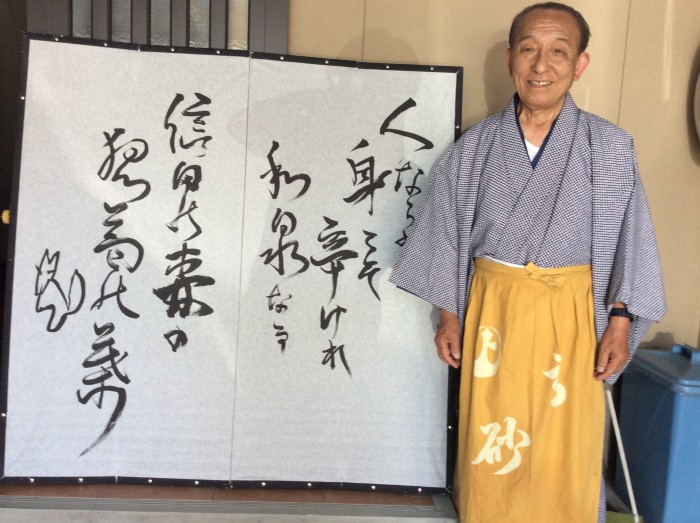 人ならぬ
身こそ
辛けれ
和泉なる
信田の森の
狐葛の葉
砂